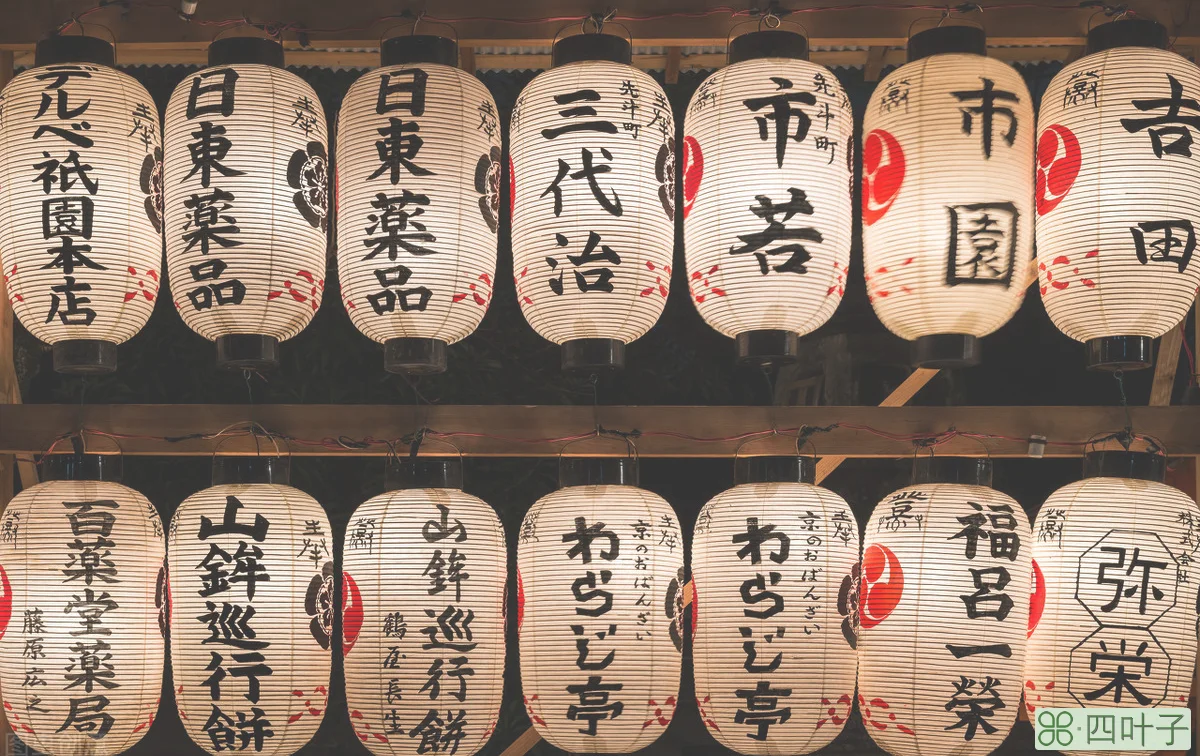 デルベ祇園本店
日東薬品
奉
日東薬品
奉
三代治
先斗町
奉
市若
先斗町
市園
吉田
百薬堂薬局
藤原広之
山鉾巡行餅
奉
山鉾巡行餅
鶴屋長生
わらじ亭
京のおばんざい
奉
わらじ亭
京のおばんざい
奉
福呂一榮
弥栄
株式会社
四叶子